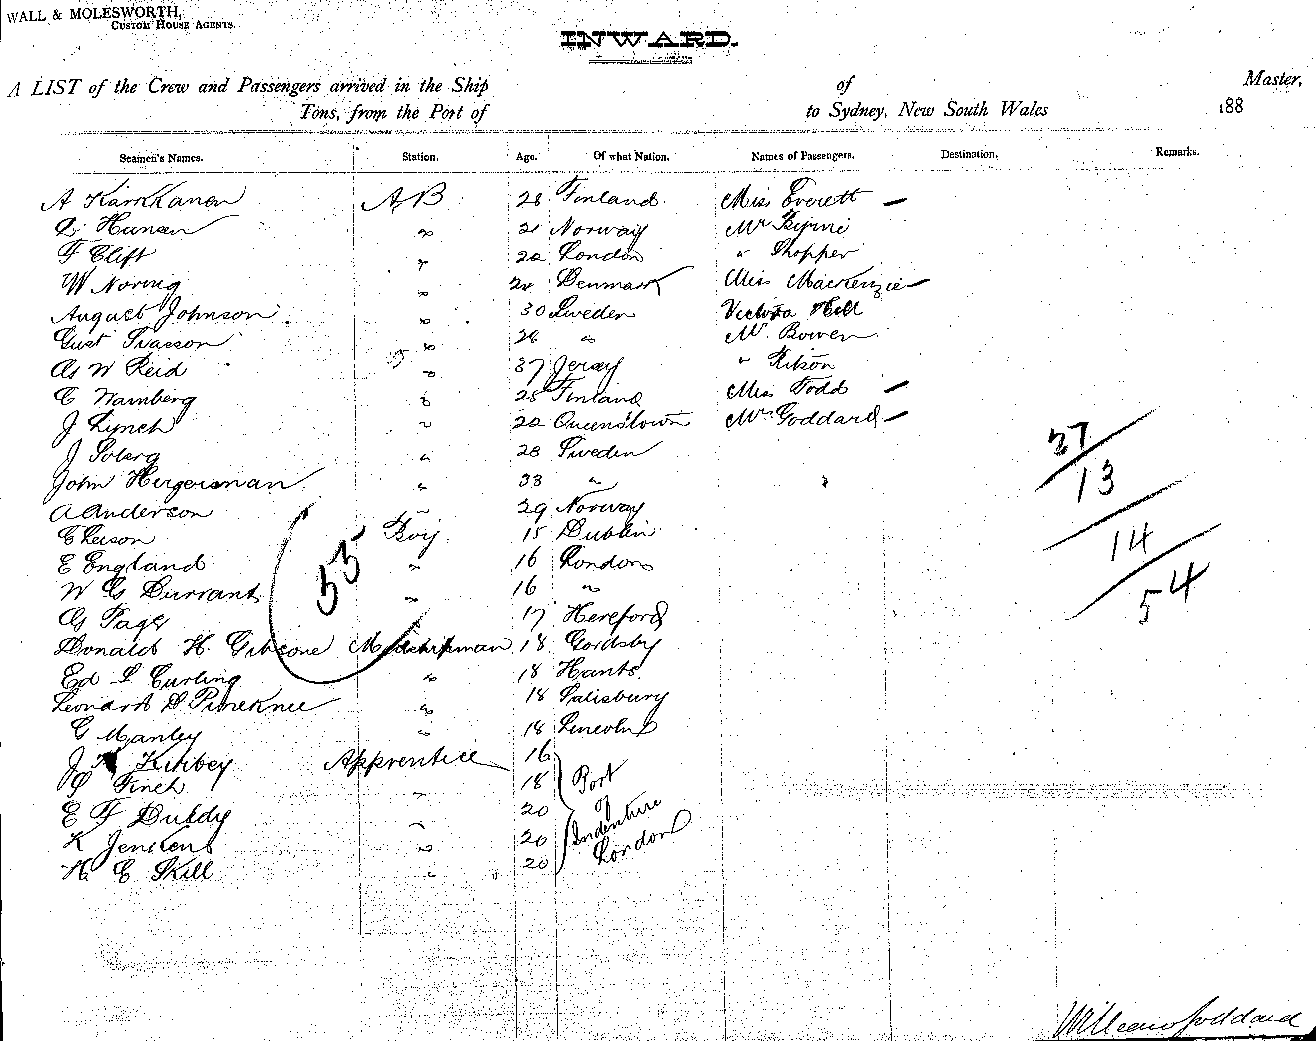 WALL & MOLESWORTH,
CUSTOM HOUSE AGENTS.
INWARD.
A LIST of the Crew and Passengers arrived in the Ship of Master,
Tons, from the Port of to Sydney, New South Wales 188
Seamen's Names. Station. Age. Of what Nation. Names of Passengers. Destination. Remarks.
A Karkkanen AB 28 Finland Miss Everett —
Hansen " 21 Norway Mr Byrne
F Clift " 22 London " Shopper
W Noring " Denmark Miss Mackenzie —
August Johnson " 30 Sweden Victoria Hill
Gust Isacson " 26 " Mr Bowen
G W Reid " 37 Jersey "
C Namberg " 25 Finland Miss Todd —
J Lynch " 22 Queenstown Mrs Goddard —
J Solerg " 28 Sweden
John Hergersman " 33 "
A Anderson " 29 Norway
C Leeson Boy 15 Dublin
E England " 16 London
W G Durrant " 16 "
G Page 17 Hereford
Donald H. Gibsone Midshipman 18
Ed L Curling " 18 Hants.
Leonard D Pineknee " 18 Salisbury
C Manley " 18 Lincoln
J Kirbey Apprentice 16
Finch " 18 Port
E F Duldy " 20 of
K Jenkens " 20 Indenture
H C Skill " 20 London
55
37
13
14
54
William Goddard